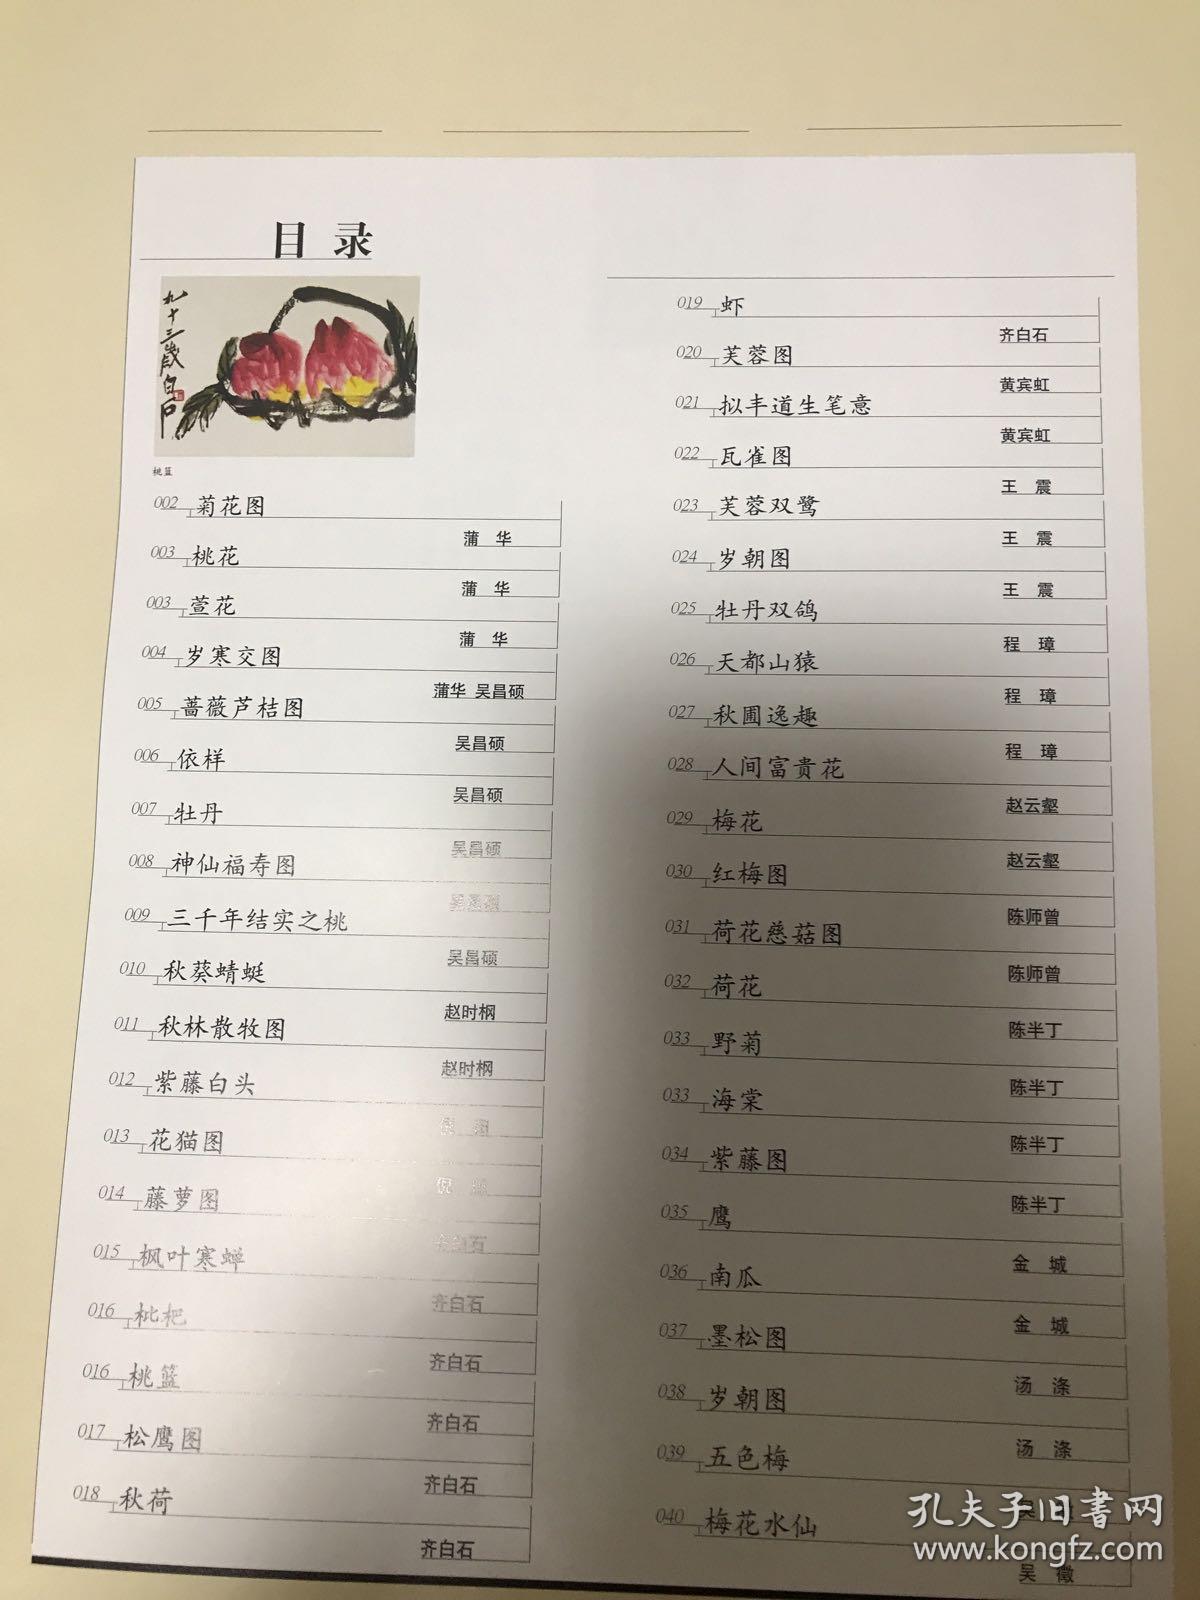 目录
九十三岁白石
桃篮
002 菊花图
蒲 华
003 桃花
蒲 华
003 萱花
蒲 华
004 岁寒交图
蒲华 吴昌硕
005 蔷薇芦桔图
吴昌硕
006 依样
吴昌硕
007 牡丹
吴昌硕
008 神仙福寿图
吴昌硕
009 三千年结实之桃
吴昌硕
010 秋葵蜻蜓
赵时㭎
011 秋林散牧图
赵时㭎
012 紫藤白头
013 花猫图
倪
014 藤萝图
齐白石
015 枫叶寒蝉
齐白石
016 枇杷
齐白石
016 桃篮
齐白石
017 松鹰图
齐白石
018 秋荷
齐白石
019 虾
齐白石
020 芙蓉图
黄宾虹
021 拟丰道生笔意
黄宾虹
022 瓦雀图
王 震
023 芙蓉双鹭
王 震
024 岁朝图
王 震
025 牡丹双鸽
程 璋
026 天都山猿
程 璋
027 秋圃逸趣
程 璋
028 人间富贵花
赵云壑
029 梅花
赵云壑
030 红梅图
陈师曾
031 荷花慈菇图
陈师曾
032 荷花
陈半丁
033 野菊
陈半丁
033 海棠
陈半丁
034 紫藤图
陈半丁
035 鹰
金 城
036 南瓜
金 城
037 墨松图
汤 涤
038 岁朝图
汤 涤
039 五色梅
吴
040 梅花水仙
吴 徵
孔夫子旧书网
www.kongfz.com